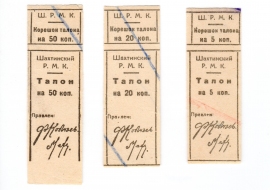 Ш. Р. М. К.
Корешок талона
на 50 коп.
Шахтинский
Р. М. К.
Талон
на 50 коп.
Правлен:
Ш. Р. М. К.
Корешок талона
на 20 коп.
Шахтинский
Р. М. К.
Талон
на 20 коп.
Правлен:
Ш. Р. М. К.
Корешок талона
на 5 коп.
Шахтинский
Р. М. К.
Талон
на 5 коп.
Правлен: